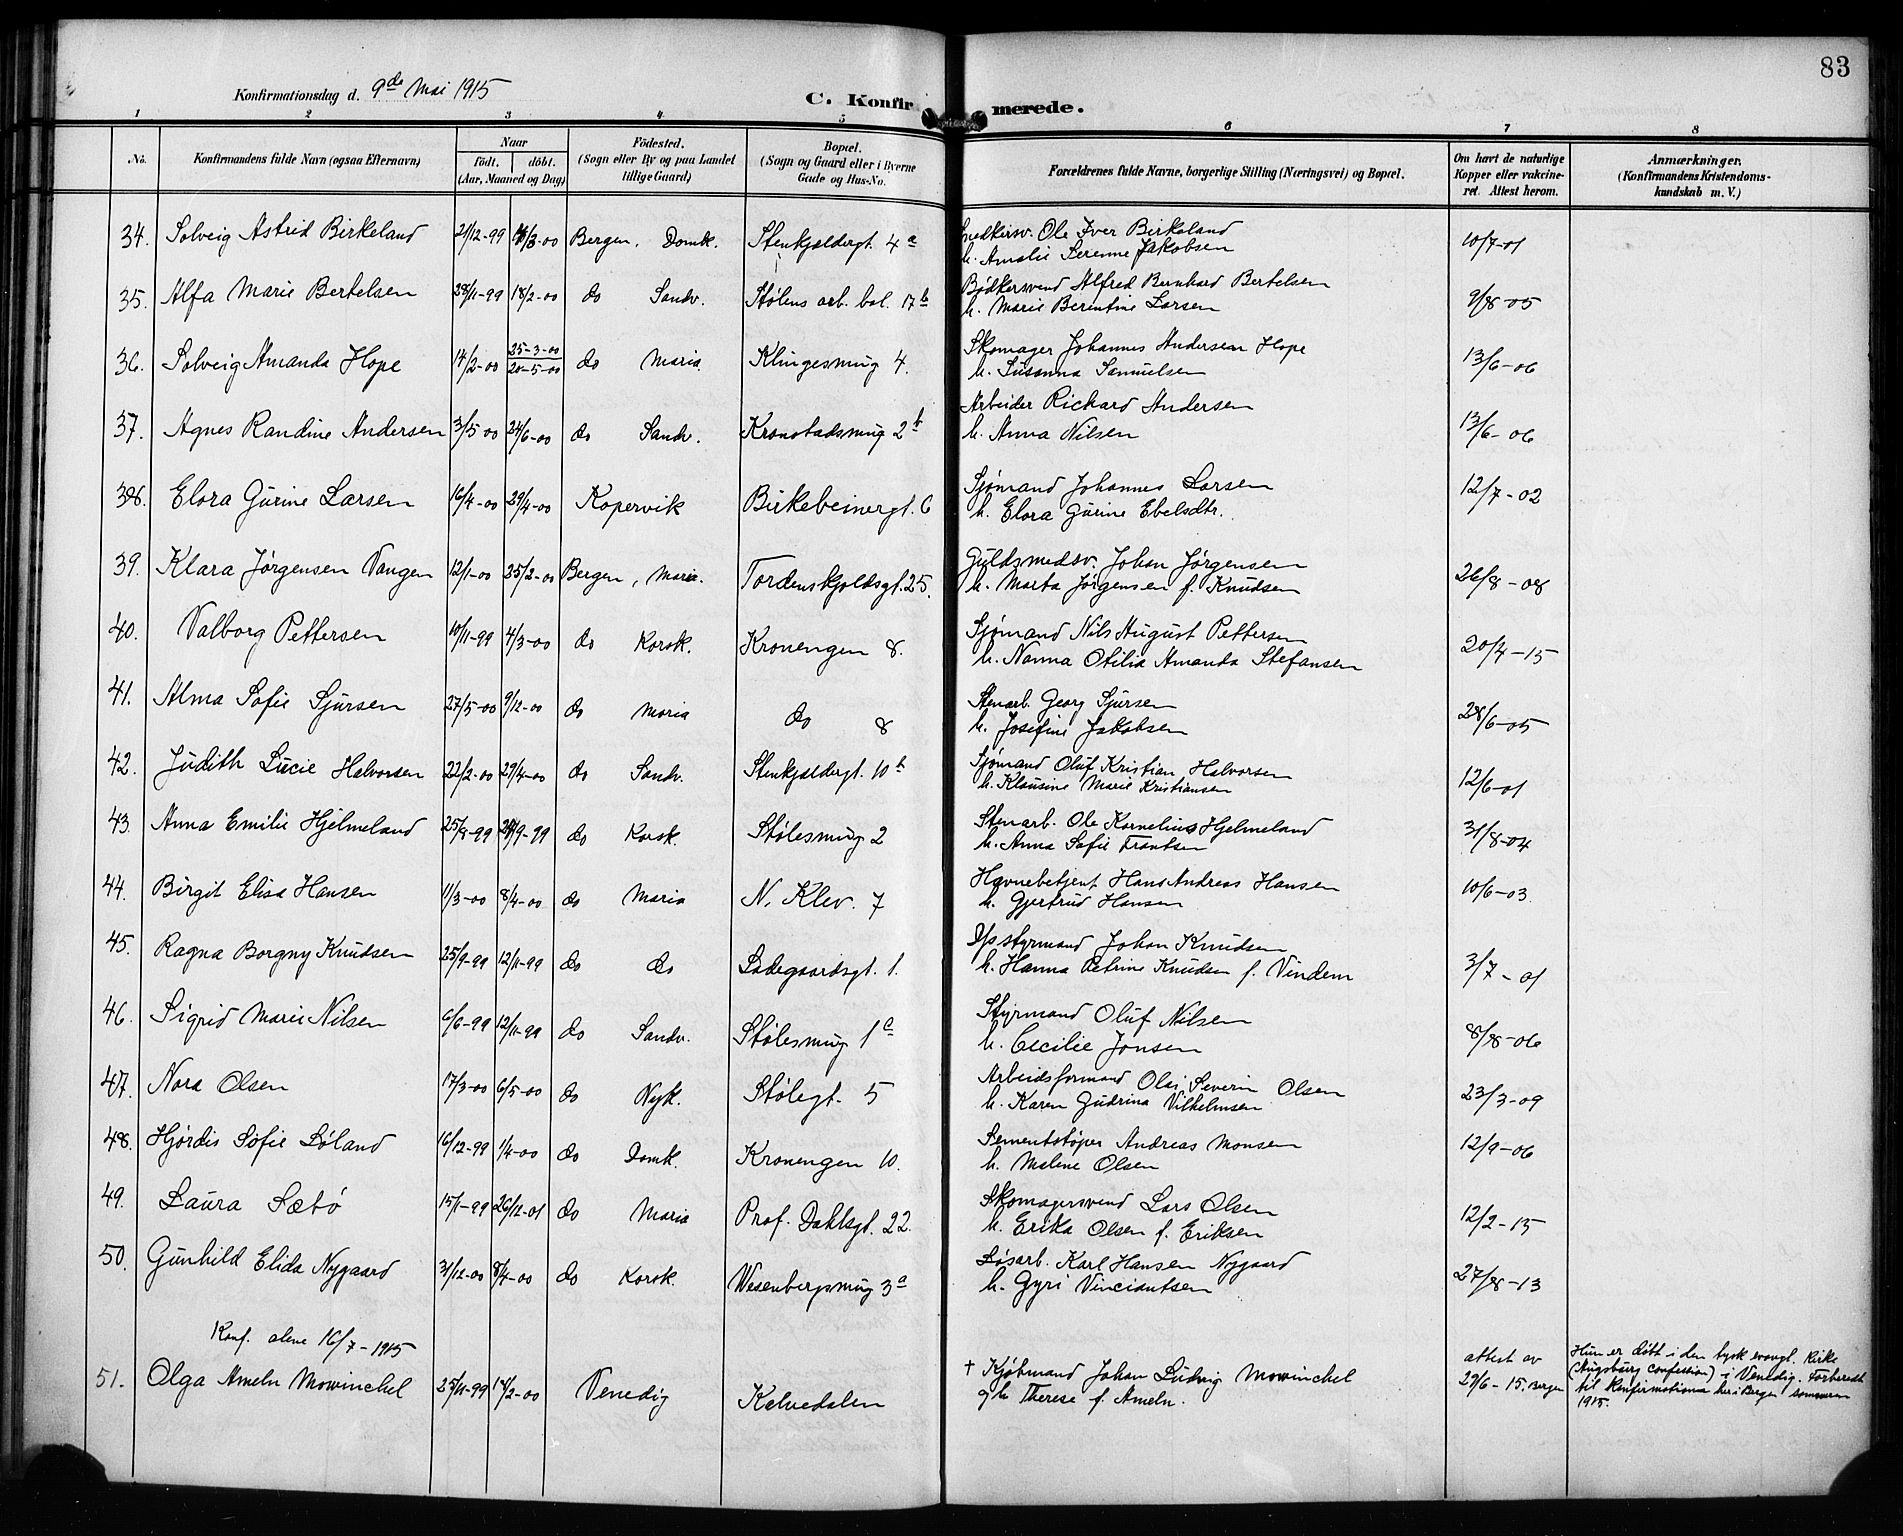 83
Konfirmationsdag d. 9de Mai 1915
C. Konfirmerede.
1 2 3 4 5 6 7 8
No. Konfirmandens fulde Navn (ogsaa Efternavn) Naar födt. döbt. (Aar, Maaned og Dag) Födested. (Sogn eller By og paa Landet tillige Gaard) Bopæl. (Sogn og Gaard eller i Byerne Gade og Hus-No. Forældrenes fulde Navne, borgerlige Stilling (Næringsvei) og Bopæl. Om havt de naturlige Kopper eller vakcineret. Attest herom. Anmærkninger. (Konfirmandens Kristendomskundskab m. V.)
34. Solveig Astrid Birkeland 21/12-99 /3-00 Bergen, Domk. Stenkjeldergt. 4a Snedkersv. Ole Iver Birkeland 10/7-01
h. Amalie Serenne Jakobsen
35. Alfa Marie Bertelsen 28/11-99 18/2-00 do Sandv. Stølens arb. bol. 17b Bødkersvend Alfred Bernhard Bertelsen 9/8-05
h. Marie Berentine Larsen
36. Solveig Amanda Hope 14/2-00 25-3-00 20-5-00 do Maria Klingesmug 4. Skomager Johannes Andersen Hope 13/6-06
h. Susanna Samuelsen
37. Agnes Randine Andersen 3/5-00 24/6-00 do Sandv. Kronstadsmug 2b Arbeider Rickard Andersen 13/6-06
h. Anna Nilsen
38. Elora Gurine Larsen 16/4-00 29/4-00 Kopervik Birkebeinergt. 6 Sjømand Johannes Larsen 12/7-02
h. Elora Gurine Ebelsdtr.
39. Klara Jørgensen Vangen 12/1-00 25/2-00 Bergen, Maria. Tordenskjoldsgt. 25. Guldsmedsv. Johan Jørgensen 26/8-08
h. Marta Jørgensen f. Knudsen
40. Valborg Pettersen 10/11-99 4/3-00 do Korsk. Kronengen 8. Sjømand Nils August Pettersen 20/4-15
h. Nanna Otilia Amanda Stefansen
41. Alma Sofie Sjursen 27/5-00 9/12-00 do Maria do 8 Stenarb. Georg Sjursen 28/6-05
h. Josefine Jakobsen
42. Judith Lucie Halvorsen 22/2-00 29/4-00 do Sandv. Stenkjeldergt. 10b Sjømand Oluf Kristian Halvorsen 12/6-01
h. Klausine Marie Kristiansen
43. Anna Emilie Hjelmeland 25/8-99 24/9-99 do Korsk. Stølesmug 2 Stenarb. Ole Kornelius Hjelmeland 31/8-04
h. Anna Sofie Frantsen
44. Birgit Elisa Hansen 11/3-00 8/4-00 do Maria N. Klev. 7 Havnebetjent Hans Andreas Hansen 10/6-03
h. Gjertrud Hansen
45. Ragna Borgny Knudsen 25/9-99 12/11-99 do do Ladegaardsgt. 1. D/s styrmand Johan Knudsen 3/7-01
h. Hanna Petrine Knudsen f. Vindem
46. Sigrid Marie Nilsen 6/6-99 12/11-99 do Sandv. Stølesmug 1c Styrmand Oluf Nilsen 8/8-06
h. Cecilie Jonsen
47. Nora Olsen 17/3-00 6/5-00 do Nyk. Stølegt. 5 Arbeidsformand Olai Severin Olsen 23/3-09
h. Karen Gudrina Vilhelmsen
48. Hjørdis Sofie Løland 16/12-99 1/4-00 do Domk. Kronengen 10. Sementstøper Andreas Monsen 12/9-06
h. Malene Olsen
49. Laura Sætø 15/1-99 26/12-01 do Maria Prof. Dahlsgt. 22. Skomagersvend Lars Olsen 12/2-15
h. Erika Olsen f. Eriksen
50. Gunhild Elida Nygaard 31/12-00 8/4-00 do Korsk. Wesenbergsmug 3a Løsarb. Karl Hansen Nygaard 27/8-13
h. Gyri Vinciantsen
Konf. alene 16/7-1915
51. Olga Ameln Mowinckel 25/11-99 14/2-00 Venedig Kalvedalen † Kjøbmand Johan Ludvig Mowinckel attest av 29/6-15. Bergen
g h Therese f. Ameln.
Hun er døbt i den tysk evangl. Kirke
(Augsburg confession) i Venedig. Forberedt
til Konfirmationen her i Bergen sommeren
1915.